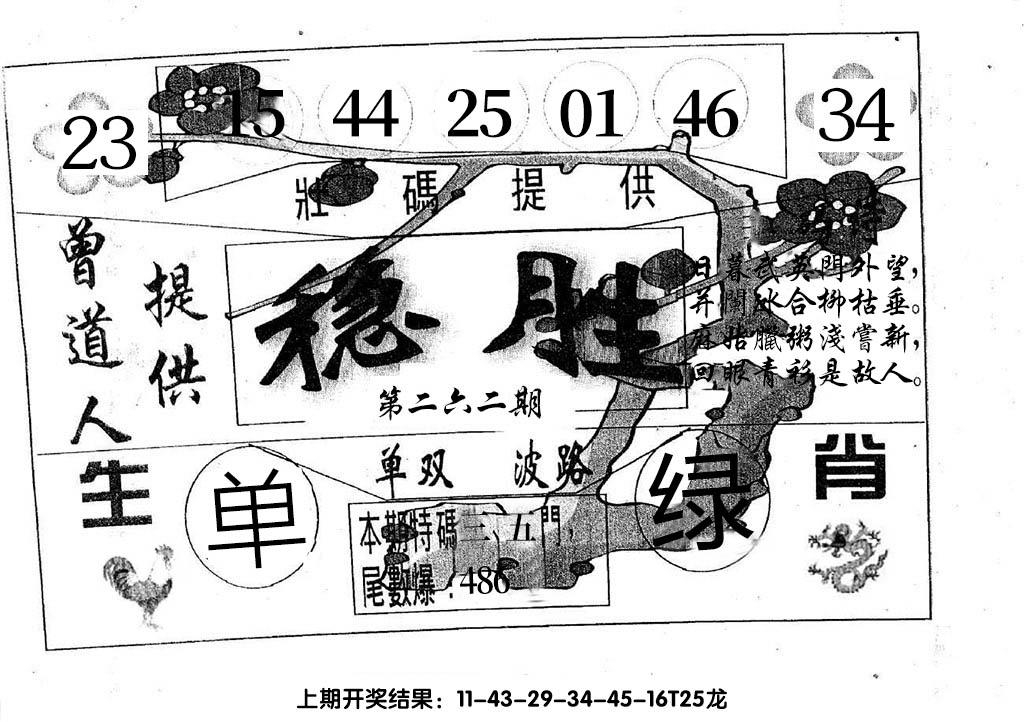 23 15 44 25 01 46 34
壯碼提供
曾道人
提供
稳胜
第二六二期
日暮武英門外望，
弃閘冰合柳枯垂。
店指臘粥淺嘗新，
回眼青衫是故人。
单双 波路
生肖
单
绿
本期特碼三、五門，
尾數爆：486
上期开奖结果：11-43-29-34-45-16T25龙